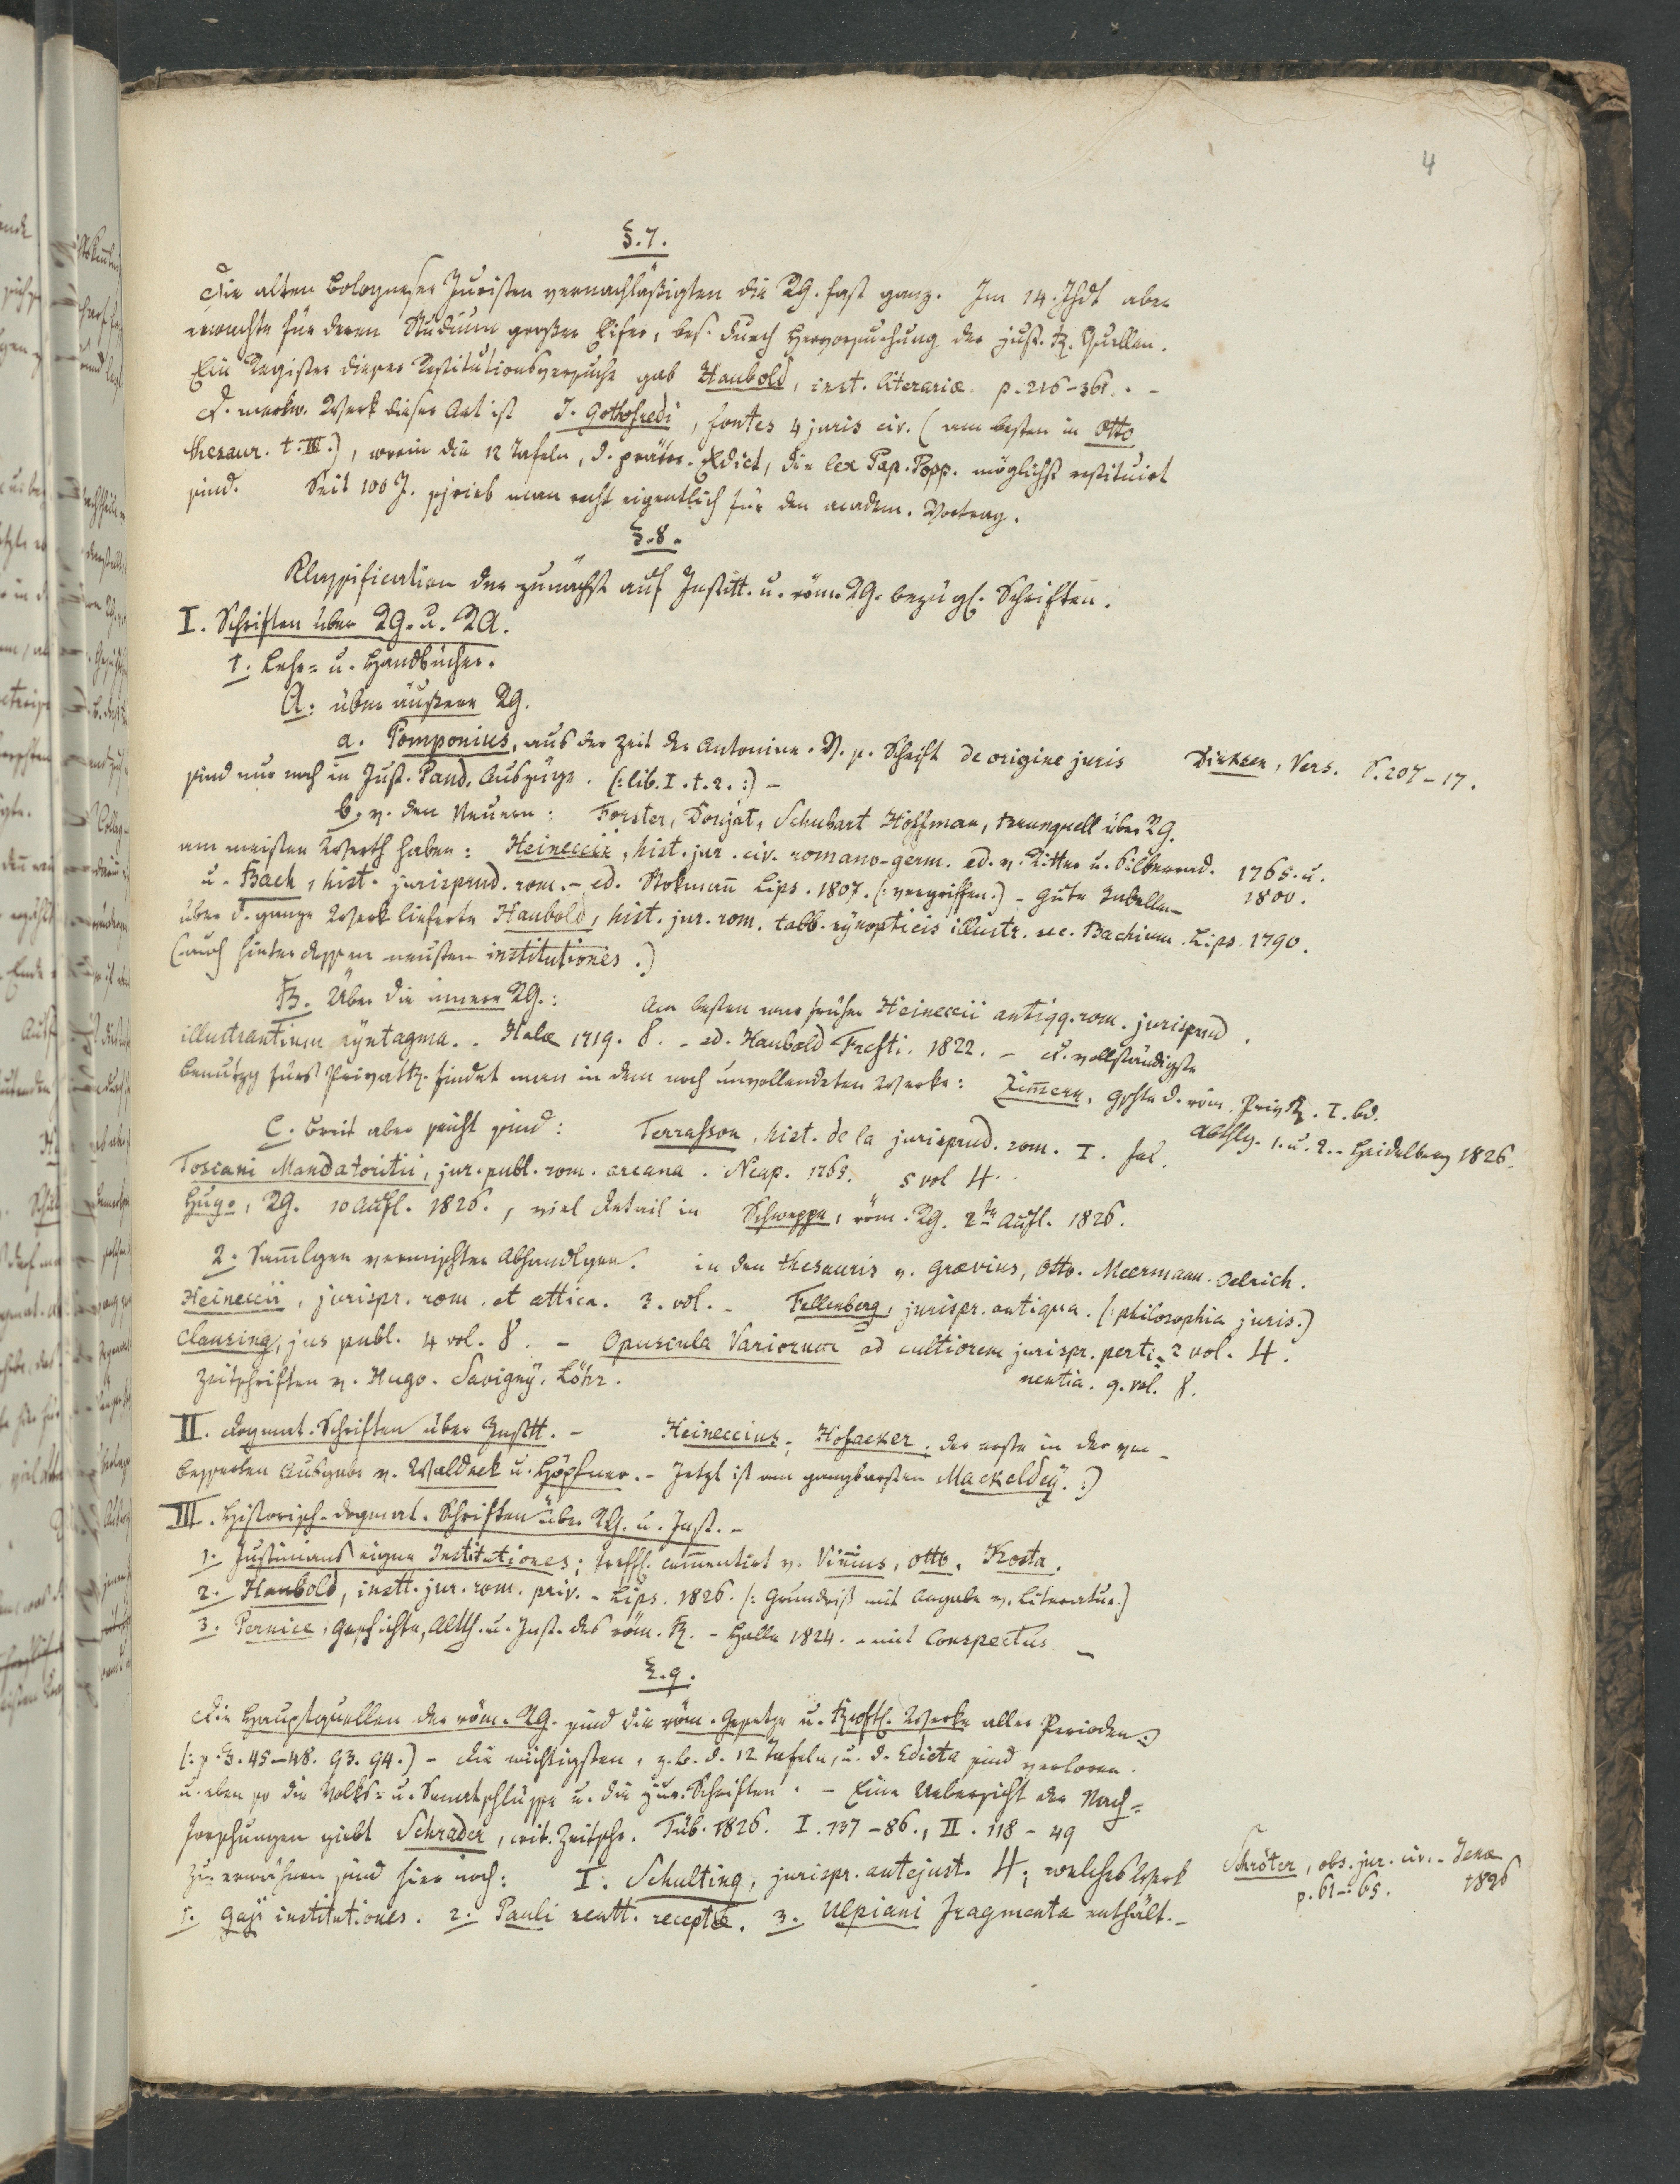 4
§. 7.
Die alten Bologneser Juristen vernachläßigten die RG. fast ganz. Im 14. Jhdt aber
erwachte für deren Studium großer Eifer, bes. durch Hervorsuchung der just. R. Quellen.
Ein Register dieser Restitutionsversuche gab Haubold, inst. literariæ p. 216-361. -
D. merkw. Werk dieser Art ist J. Gothofredi, fontes 4 juris civ. (am besten in Otto
thesaur. t. III.), worin die 12 Tafeln, d. prätor. Edict, die lex Pap. Popp. möglichst restituirt
sind. Seit 100 J. schrieb man erst eigentlich für den academ. Vortrag.
§. 8.
Klassification der zunächst auf Institt. u. röm. RG. bezügl. Schriften.
I. Schriften über RG. u. RA.
1. Lehr- u. Handbücher.
A. über äußere RG.
a. Pomponius, aus der Zeit der Antonine. V. s. Schrift de origine juris
sind nur noch in Just. Pand. Auszüge. (: lib. I. t. 2. :) -
Dirksen, Vers. S. 207-17.
b. v. den Neuern: Forster, Doujat, Schubart Hoffman, Brunquell über RG.
am meisten Werth haben: Heineccii, hist. jur. civ. romano-germ. ed. v. Ritter u. Silberrad. 1765. u.
u. Bach, hist. jurisprud. rom. - ed. Stokmañ Lips. 1807. (: vergriffen.) - Gute Tabellen 1800.
über d. ganze Werk lieferte Haubold, hist. jur. rom. tabb. synopticis illustr. sec. Bachium. Lips. 1790.
(auch hinter dessen neusten institutiones.)
B. Über die innere RG.: Am besten war früher Heineccii antiqq. rom. jurisprud.
illustrantium syntagma. - Halæ 1719. 8. - ed. Haubold Frcfti. 1822. - D. vollständigste
Benutzg fürs Privatr. findet man in dem noch unvollendeten Werke: Zim̄ern, Gschte d. röm. PrivR. I. Bd.
Abthlg. 1. u. 2. - Heidelberg 1826.
C. Breit aber seicht sind: Terrasson, hist. de la jurisprud. rom. I. fol.
Toscani Mandatoritii, jur. publ. rom. arcana. Neap. 1765. 5 vol 4.
Hugo, RG. 10 Aufl. 1826., viel Detail in Schweppe, röm. RG. 2te Aufl. 1826.
2. Sam̄lgen vermischter Abhandlgen. in den thesauris v. Grævius, Otto. Meermann. Oelrich.
Heineccii, jurispr. rom. et attica. 3. vol. - Fellenberg, jurispr. antiqua. (: philosophia juris.)
Clausing, jus publ. 4 vol. 8. - Opuscula Variorum ad cultiorem jurispr. perti= 2 vol. 4.
nentia. 9. vol. 8.
Zeitschriften v. Hugo. Savigny. Löhr.
II. dogmat. Schriften über Instt. - Heineccius, Hofacker, der erste in der ver-
besserten Ausgabe v. Waldeck u. Höpfner. - Jetzt ist am gangbarsten Mackeldey. :)
III. Historisch-dogmat. Schriften über RG. u. Inst. -
1. Justinians eigne Institutiones; treffl. com̄entirt v. Viñius, Otto, Kosta.
2. Haubold, instt. jur. rom. priv. - Lips. 1826. (: Grundriß mit Angabe v. Literatur.)
3. Pernice, Geschichte, Altth. u. Inst. des röm. R. - Halle 1824. - mit Conspectus -
§. 9.
Die Hauptquellen der röm. RG. sind die röm. Gesetze u. Rwsftl. Werke aller Perioden :)
(: s. §. 45-48. 93. 94.) - Die wichtigsten, z. B. d. 12 Tafeln, u. d. Edicta sind verloren.
u. eben so die Volks- u. Senatschlüsse u. die jur. Schriften. - Eine Uebersicht der Nach=
forschungen giebt Schrader, crit. Zeitschr. Tüb. 1826. I. 137-86., II. 118-49
Zu erwähnen sind hier noch: I. Schulting, jurispr. antejust. 4; welches Werk
1. Gaji institutiones. 2. Pauli sentt. receptæ. 3. Ulpiani fragmenta enthält. -
Schröter, obs. jur. civ. - Jena
p. 61-65. 1826